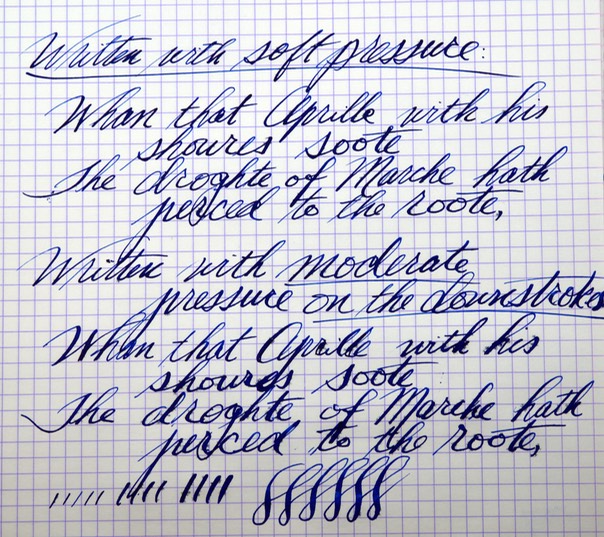 Written with soft pressure:
Whan that Aprille with his
shoures soote
The droghte of Marche hath
perced to the roote,
Written with moderate
pressure on the downstrokes
Whan that Aprille with his
shoures soote
The droghte of Marche hath
perced to the roote,